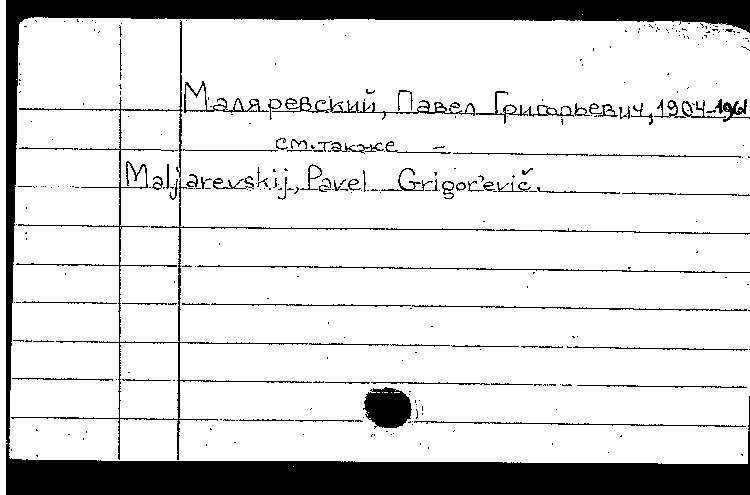 Маляревский, Павел Григорьевич, 1904-1961
см. также -
Maljarevskij, Pavel Grigor'evič.